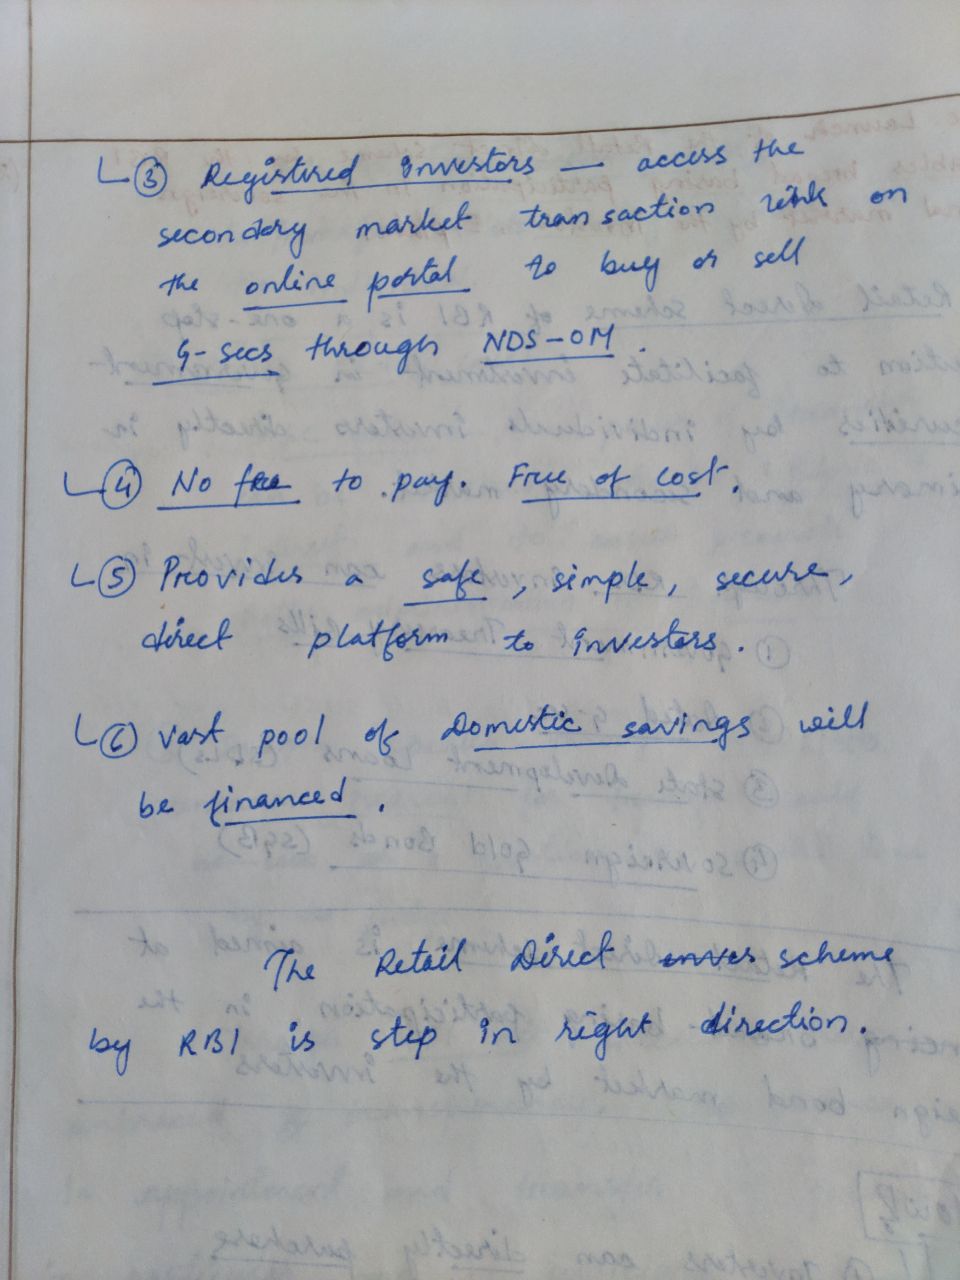 ③ Registered investors — access the
secondary market transaction link on
the online portal to buy or sell
G-secs through NDS-OM.
④ No fee to pay. Free of cost.
⑤ Provides a safe, simple, secure,
direct platform to investors.
⑥ vast pool of Domestic savings will
be financed.
The Retail Direct scheme
by RBI is step in right direction.